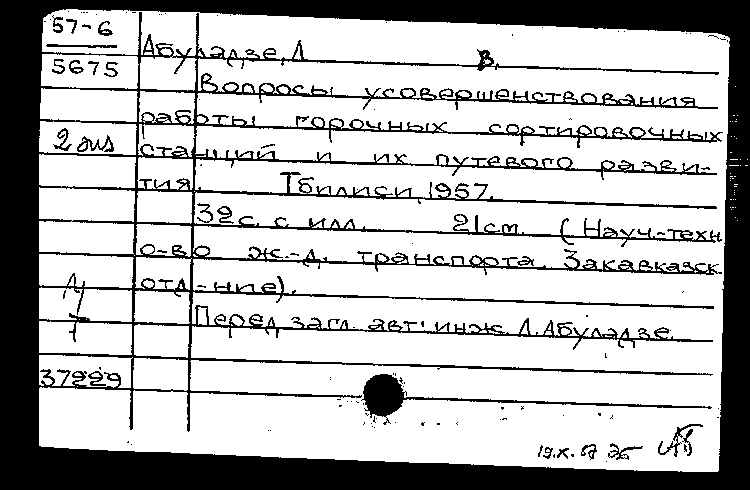 57-6
5675
Абуладзе, Л В.
Вопросы усовершенствования
работы горочных сортировочных
2 экз
станций и их путевого разви-
тия. Тбилиси, 1957.
32 с. с илл. 21 см. (Науч.-техн
о-во ж.-д. транспорта. Закавказск
отд-ние).
Перед загл. авт: инж. Л. Абуладзе.
37229
19.X.57